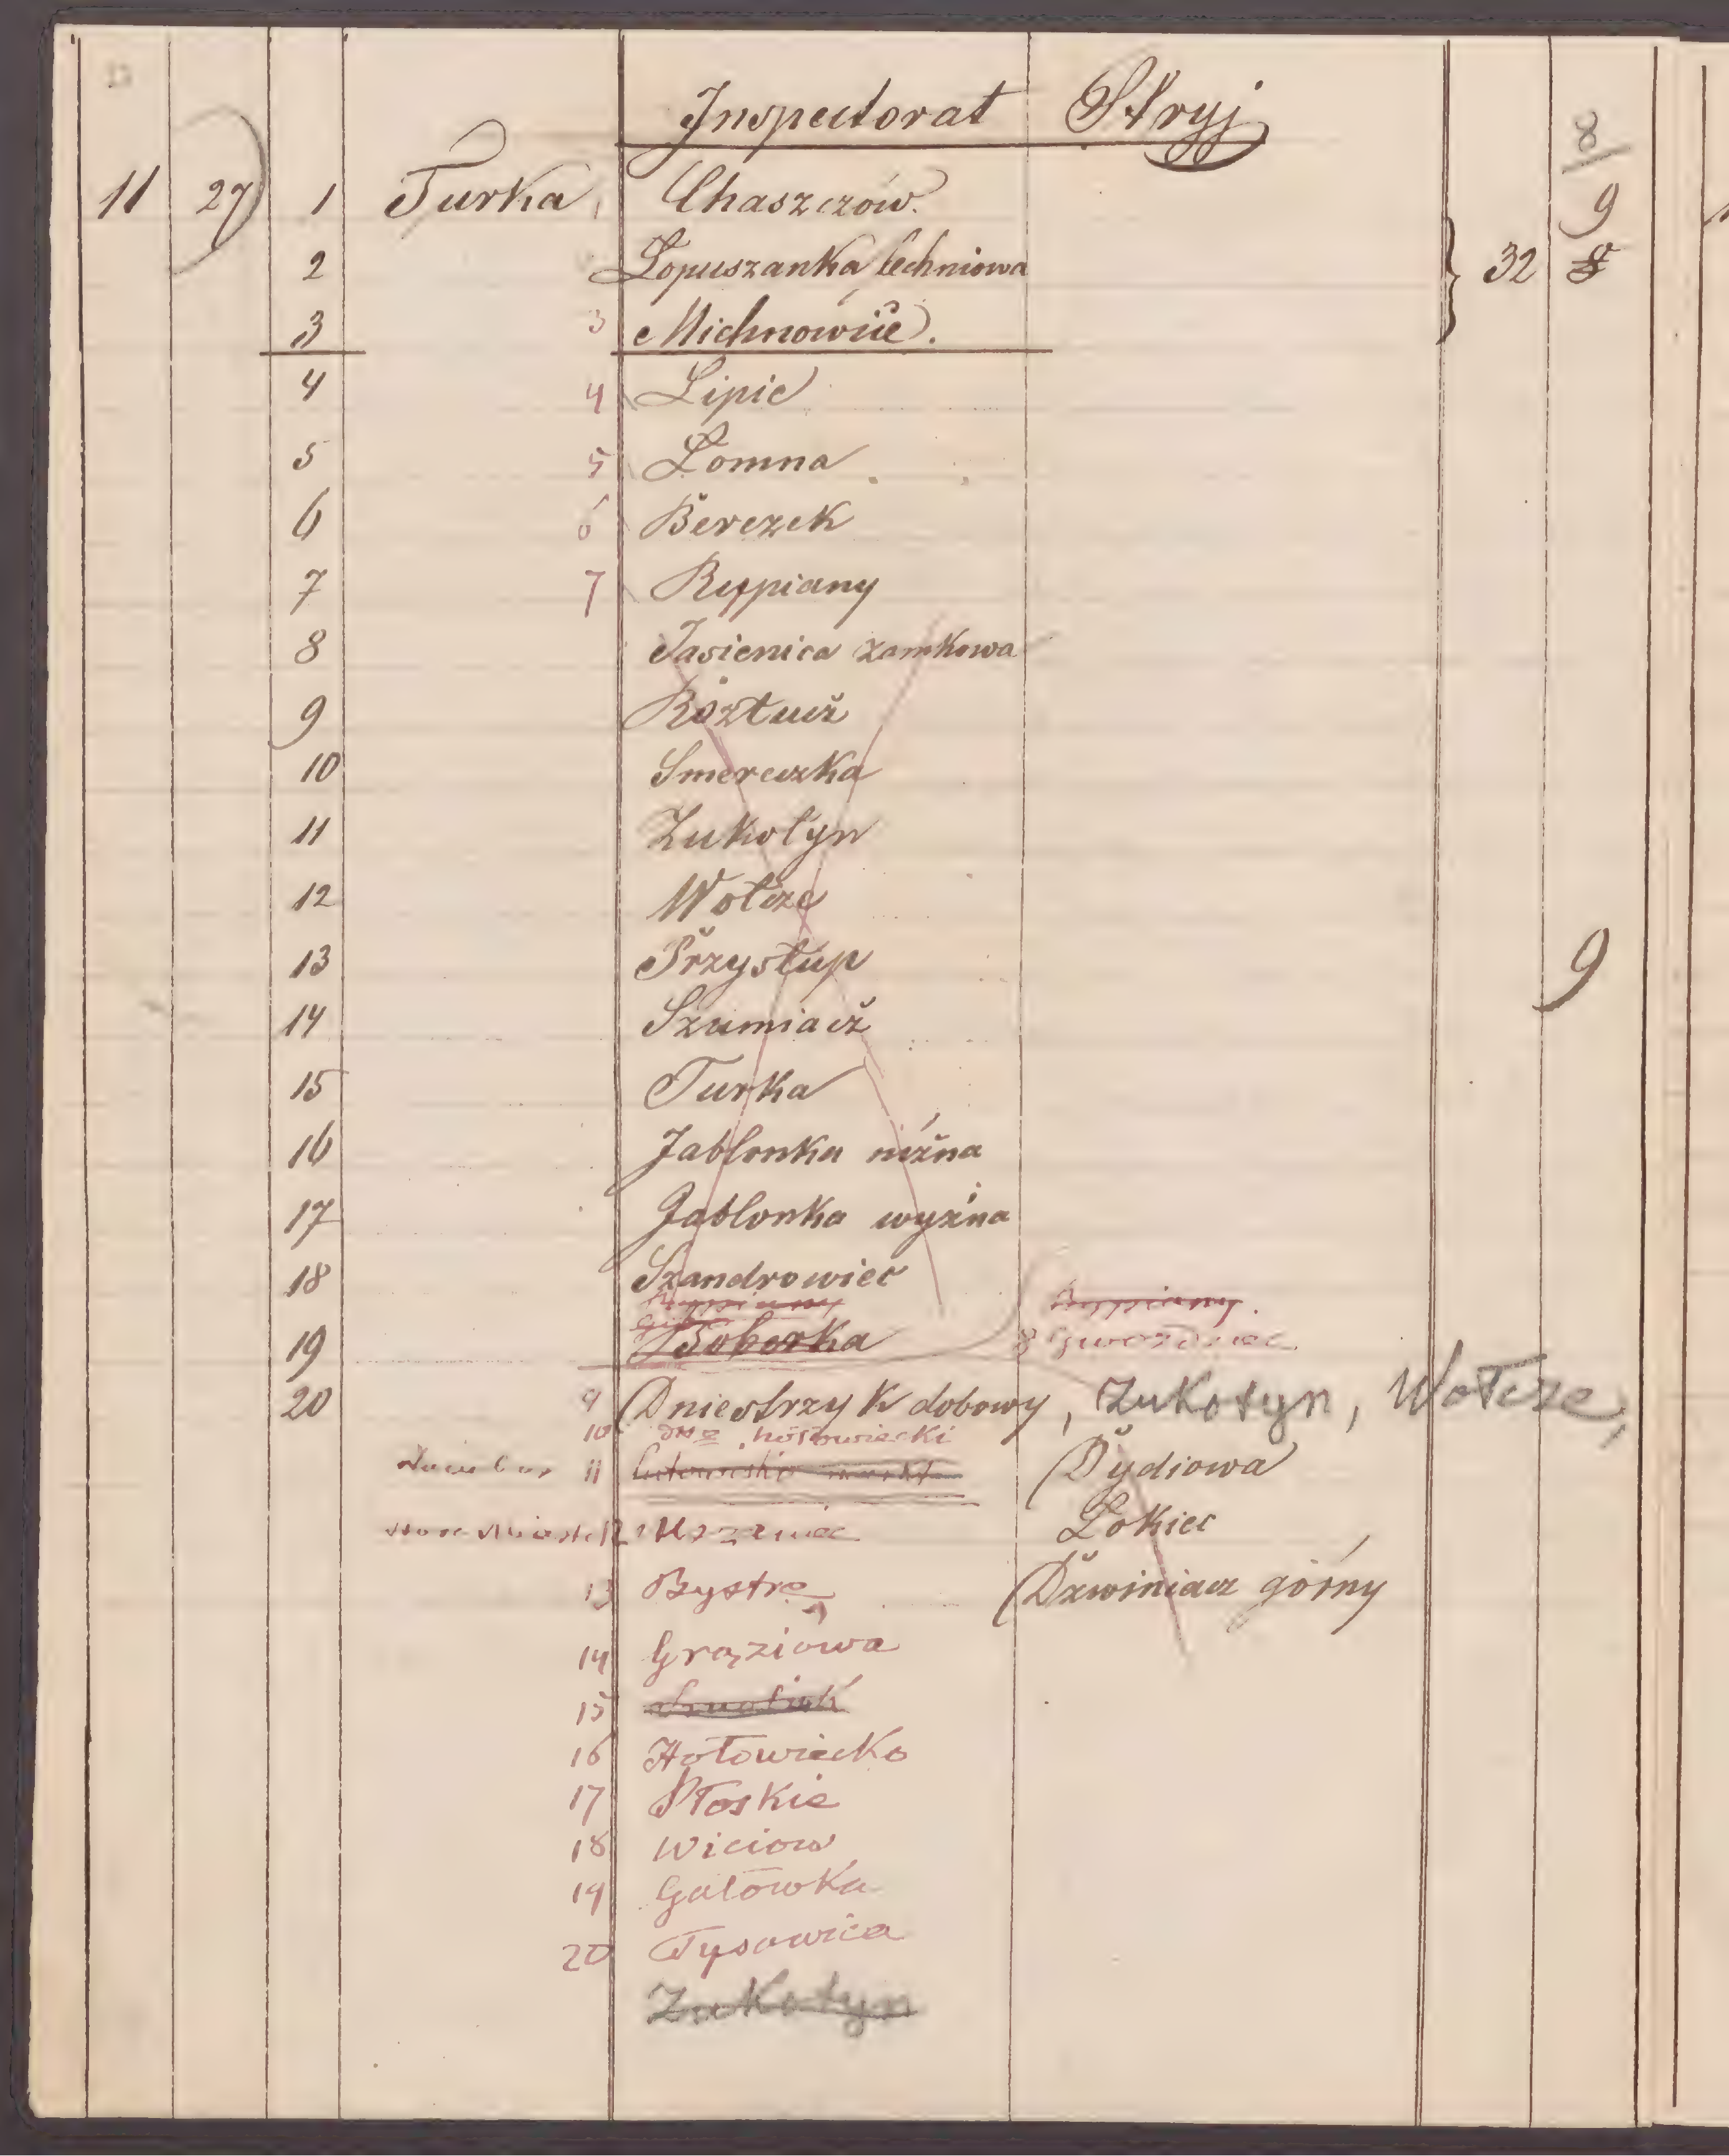 Inspectorat Stryj
8
11 27 1 Turka, Chaszczów. 9
2 Łopuszanka lechniowa } 32 8
3 3 Michnowiec.
4 4 Lipie
5 5 Łomna
6 6 Berezek
7 7 Ryppiany
8 Jasienica zamkowa
9 Roztucz
10 Smereczka
11 Żukotyn
12 Wołcze
13 Przystup 9
14 Szumiacz
15 Turka
16 Jabłonka niżna
17 Jabłonka wyżna
18 Szandrowiec
Ryppiany Ryppiany.
19 Boberka 8 Gwozdziec
20 9 Dniestrzyk dobowy, Żukotyn, Wołcze,
10 hołowiecki
11 Lutowiska Dydiowa
Stare Miasto 12 Mszaniec Łokiec
13 Bystre Dźwiniacz górny
14 Grąziowa
15
16 Hołowiecko
17 Płoskie
18 Wiciow
19 Gałówka
20 Tysowica
Żukotyn